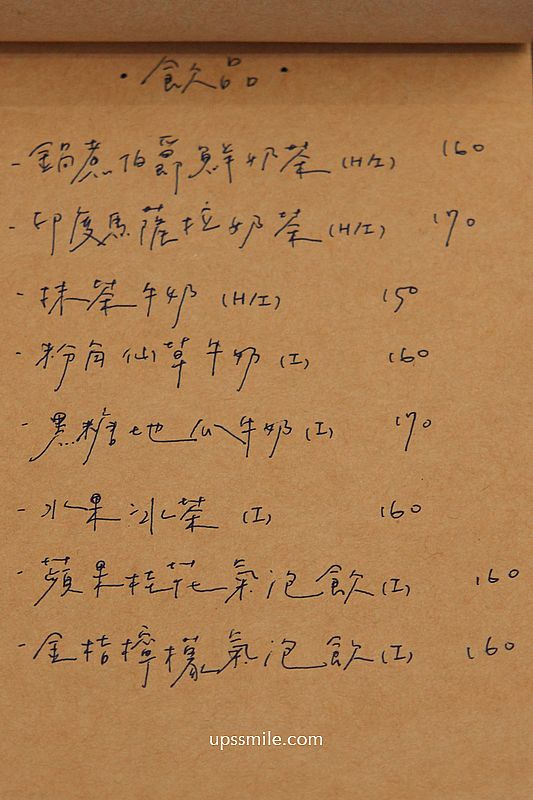 ·飲品·
-鍋煮伯爵鮮奶茶(H/I) 160
-印度馬薩拉奶茶(H/I) 170
-抹茶牛奶(H/I) 150
-粉角仙草牛奶(I) 160
-黑糖地瓜牛奶(I) 170
-水果冰茶(I) 160
-蘋果桂花氣泡飲(I) 160
-金桔檸檬氣泡飲(I) 160
upssmile.com